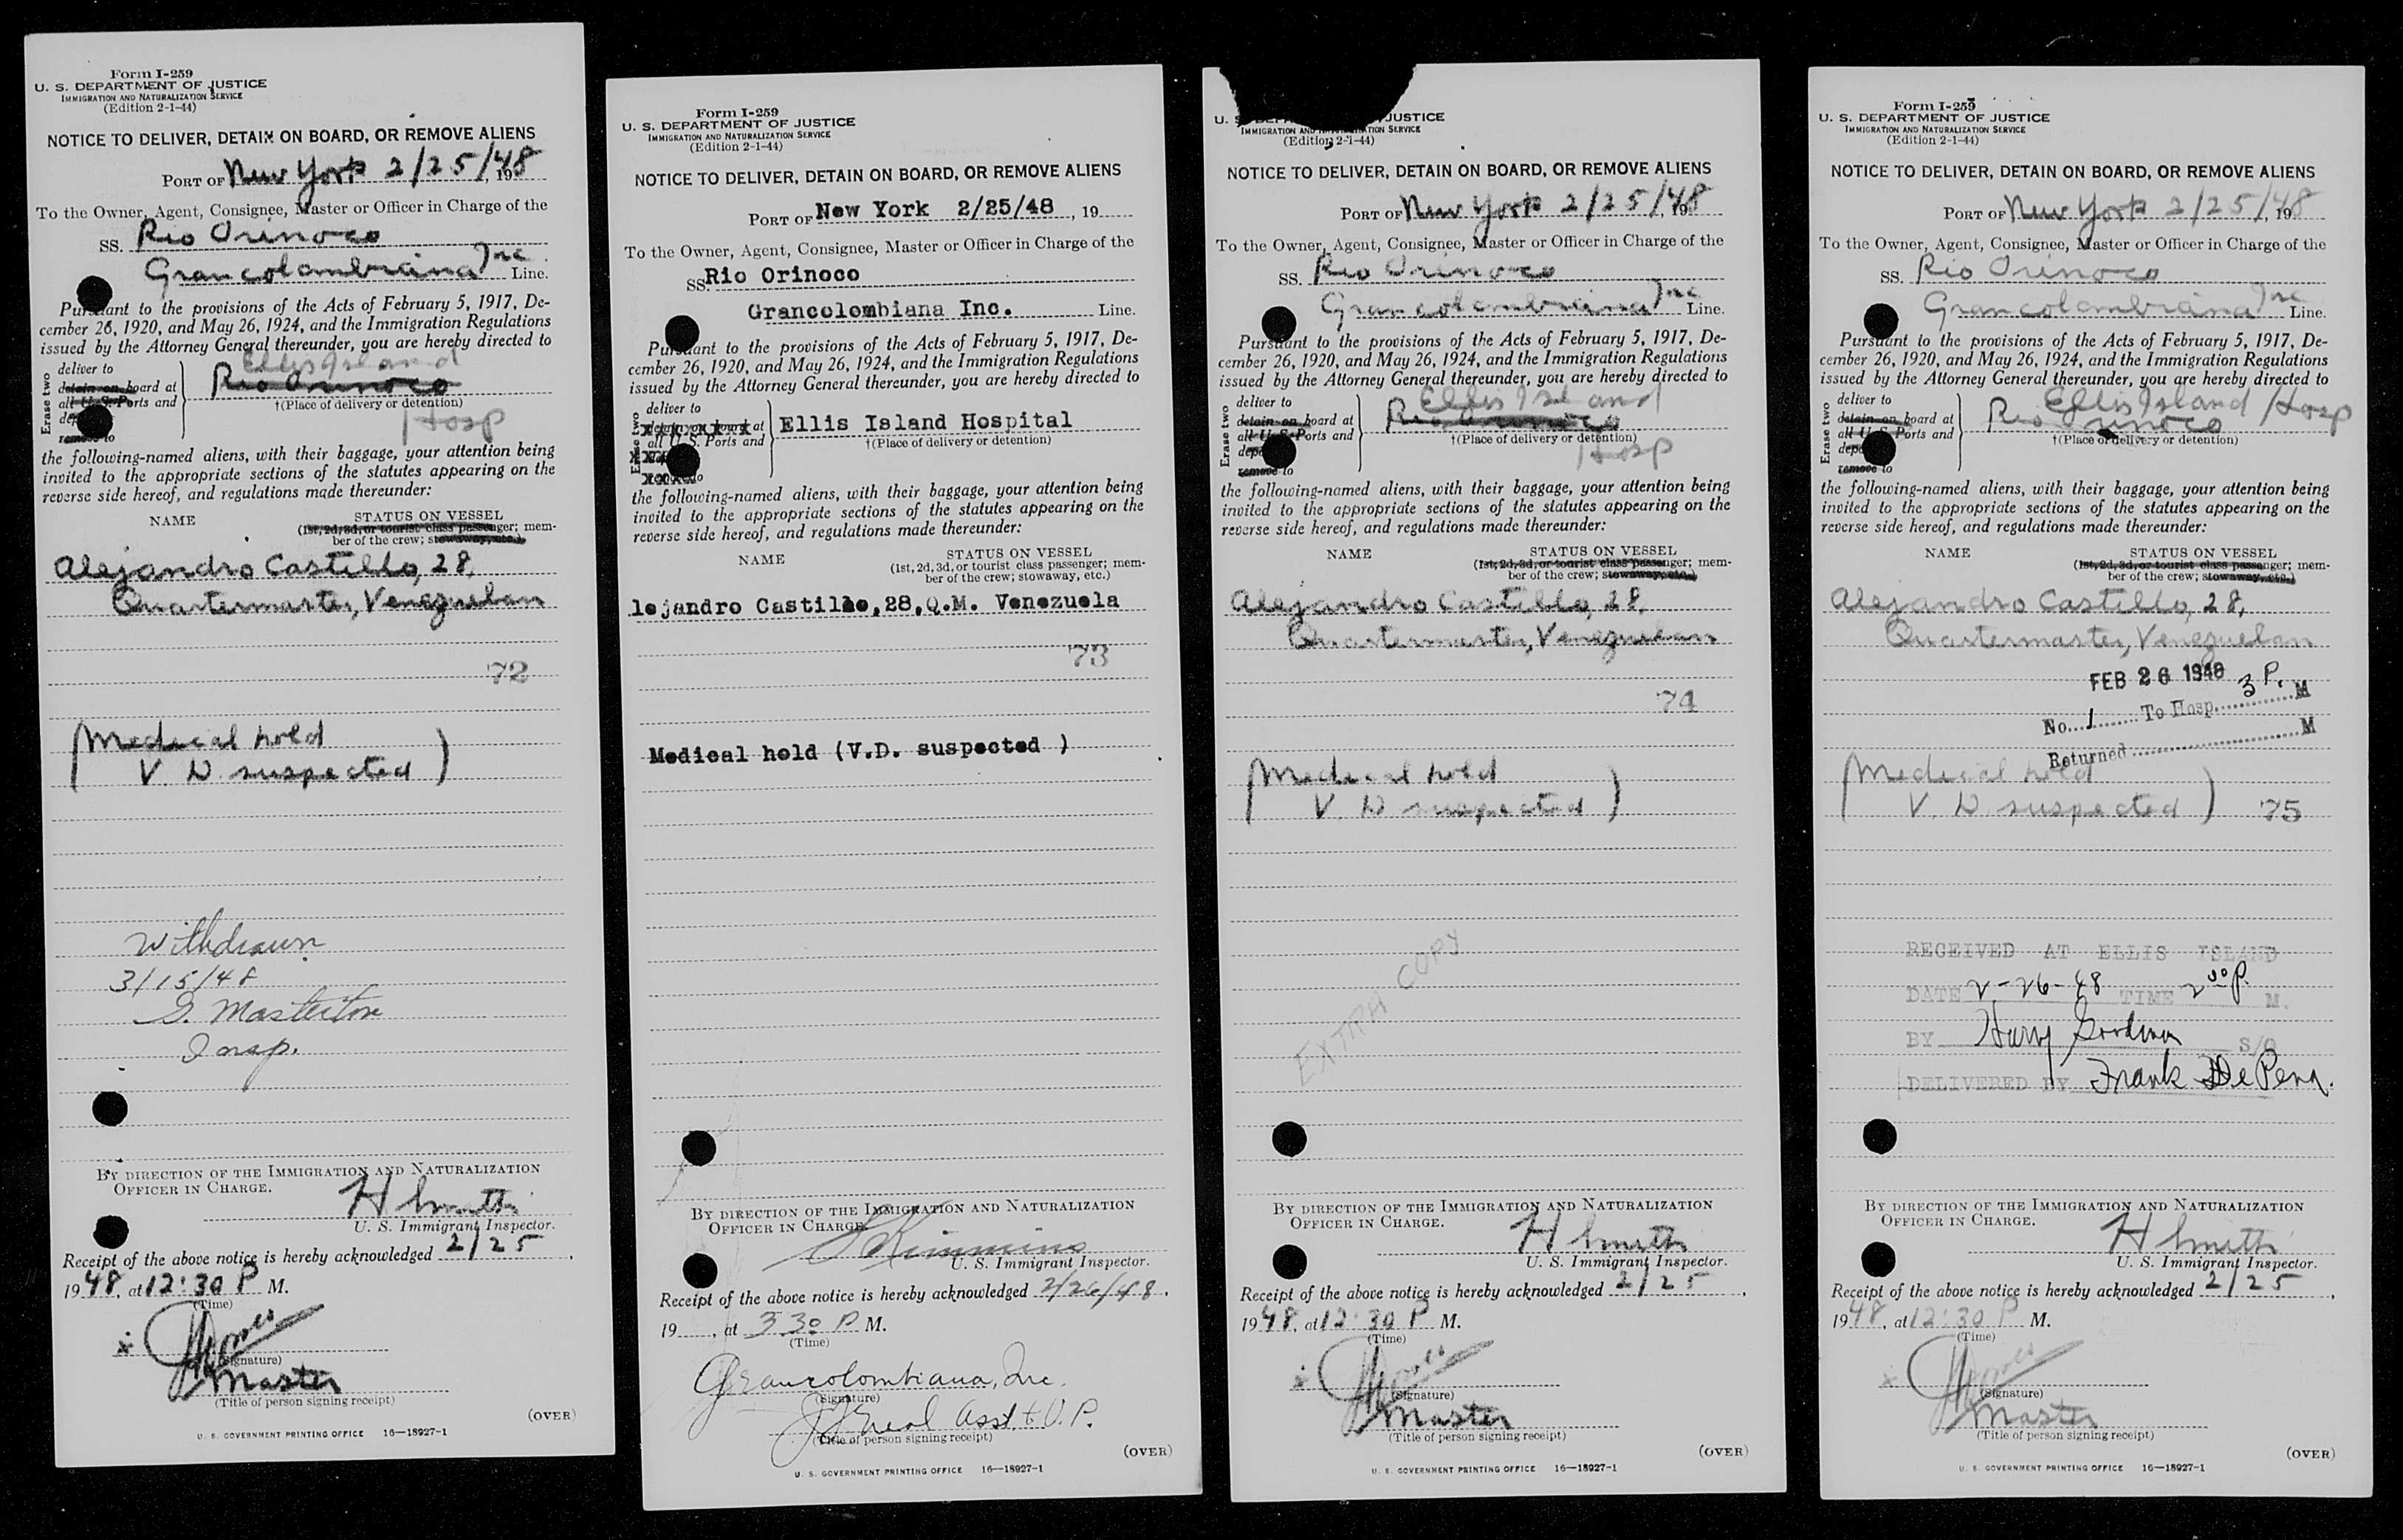 Form I-259
U. S. DEPARTMENT OF JUSTICE
IMMIGRATION AND NATURALIZATION SERVICE
(Edition 2-1-44)
NOTICE TO DELIVER, DETAIN ON BOARD, OR REMOVE ALIENS
PORT OF New York 2/25/48, 19
To the Owner, Agent, Consignee, Master or Officer in Charge of the
SS. Rio Orinoco
Grancolombiana Inc. Line.
Pursuant to the provisions of the Acts of February 5, 1917, De-
cember 26, 1920, and May 26, 1924, and the Immigration Regulations
issued by the Attorney General thereunder, you are hereby directed to
Erase two
deliver to Ellis Island
detain on board at Rio Orinoco
all U. S. Ports and †(Place of delivery or detention)
Hosp
remove to
the following-named aliens, with their baggage, your attention being
invited to the appropriate sections of the statutes appearing on the
reverse side hereof, and regulations made thereunder:
NAME STATUS ON VESSEL
(1st, 2d, 3d, or tourist class passenger; mem-
ber of the crew; stowaway, etc.)
Alejandro Castillo, 28,
Quartermaster, Venezuelan
72
(Medical hold
V. D suspected)
Withdrawn
3/15/48
G. Masterton
Insp.
BY DIRECTION OF THE IMMIGRATION AND NATURALIZATION
OFFICER IN CHARGE.
H Smith
U. S. Immigrant Inspector.
Receipt of the above notice is hereby acknowledged 2/25,
1948, at 12:30 P M.
(Time)
x
(Signature)
Master
(Title of person signing receipt)
(OVER)
U. S. GOVERNMENT PRINTING OFFICE 16—18927-1
Form I-259
U. S. DEPARTMENT OF JUSTICE
IMMIGRATION AND NATURALIZATION SERVICE
(Edition 2-1-44)
NOTICE TO DELIVER, DETAIN ON BOARD, OR REMOVE ALIENS
PORT OF New York 2/25/48, 19
To the Owner, Agent, Consignee, Master or Officer in Charge of the
SS. Rio Orinoco
Grancolombiana Inc. Line.
Pursuant to the provisions of the Acts of February 5, 1917, De-
cember 26, 1920, and May 26, 1924, and the Immigration Regulations
issued by the Attorney General thereunder, you are hereby directed to
Erase two
deliver to
detain on board at Ellis Island Hospital
all U. S. Ports and †(Place of delivery or detention)
the following-named aliens, with their baggage, your attention being
invited to the appropriate sections of the statutes appearing on the
reverse side hereof, and regulations made thereunder:
NAME STATUS ON VESSEL
(1st, 2d, 3d, or tourist class passenger; mem-
ber of the crew; stowaway, etc.)
lejandro Castillo,28,Q.M. Venezuela
73
Medical hold (V.D. suspected )
BY DIRECTION OF THE IMMIGRATION AND NATURALIZATION
OFFICER IN CHARGE.
Kimmins
U. S. Immigrant Inspector.
Receipt of the above notice is hereby acknowledged 2/26/48,
19, at 3 30 P M.
(Time)
Grancolombiana, Inc.
(Signature)
Asst. t. V. P.
(Title of person signing receipt)
(OVER)
U. S. GOVERNMENT PRINTING OFFICE 16—18927-1
JUSTICE
IMMIGRATION AND NATURALIZATION SERVICE
(Edition 2-1-44)
NOTICE TO DELIVER, DETAIN ON BOARD, OR REMOVE ALIENS
PORT OF New York 2/25/48, 19
To the Owner, Agent, Consignee, Master or Officer in Charge of the
SS. Rio Orinoco
Grancolombiana Inc Line.
Pursuant to the provisions of the Acts of February 5, 1917, De-
cember 26, 1920, and May 26, 1924, and the Immigration Regulations
issued by the Attorney General thereunder, you are hereby directed to
Erase two
deliver to Ellis Island
detain on board at Rio Orinoco
all U. S. Ports and †(Place of delivery or detention)
Hosp
remove to
the following-named aliens, with their baggage, your attention being
invited to the appropriate sections of the statutes appearing on the
reverse side hereof, and regulations made thereunder:
NAME STATUS ON VESSEL
(1st, 2d, 3d, or tourist class passenger; mem-
ber of the crew; stowaway, etc.)
Alejandro Castillo, 28,
Quartermaster, Venezuelan
74
(Medical hold
V. D suspected)
EXTRA COPY
BY DIRECTION OF THE IMMIGRATION AND NATURALIZATION
OFFICER IN CHARGE.
H Smith
U. S. Immigrant Inspector.
Receipt of the above notice is hereby acknowledged 2/25,
1948, at 12:30 P M.
(Time)
x
(Signature)
Master
(Title of person signing receipt)
(OVER)
U. S. GOVERNMENT PRINTING OFFICE 16—18927-1
Form I-259
U. S. DEPARTMENT OF JUSTICE
IMMIGRATION AND NATURALIZATION SERVICE
(Edition 2-1-44)
NOTICE TO DELIVER, DETAIN ON BOARD, OR REMOVE ALIENS
PORT OF New York 2/25/48, 19
To the Owner, Agent, Consignee, Master or Officer in Charge of the
SS. Rio Orinoco
Grancolombiana Inc Line.
Pursuant to the provisions of the Acts of February 5, 1917, De-
cember 26, 1920, and May 26, 1924, and the Immigration Regulations
issued by the Attorney General thereunder, you are hereby directed to
Erase two
deliver to Ellis Island Hosp
detain on board at Rio Orinoco
all U. S. Ports and †(Place of delivery or detention)
remove to
the following-named aliens, with their baggage, your attention being
invited to the appropriate sections of the statutes appearing on the
reverse side hereof, and regulations made thereunder:
NAME STATUS ON VESSEL
(1st, 2d, 3d, or tourist class passenger; mem-
ber of the crew; stowaway, etc.)
Alejandro Castillo, 28,
Quartermaster, Venezuelan
FEB 26 1948 3 P.
No. 1 To Hosp. M
Returned M
(Medical hold
V. D suspected) 75
RECEIVED AT ELLIS ISLAND
DATE 2-26-48 TIME 2 00 P. M.
BY Harry Goodman S/O
DELIVERED BY Frank De Pena.
BY DIRECTION OF THE IMMIGRATION AND NATURALIZATION
OFFICER IN CHARGE.
H Smith
U. S. Immigrant Inspector.
Receipt of the above notice is hereby acknowledged 2/25,
1948, at 12:30 P M.
(Time)
x
(Signature)
Master
(Title of person signing receipt)
(OVER)
U. S. GOVERNMENT PRINTING OFFICE 16—18927-1